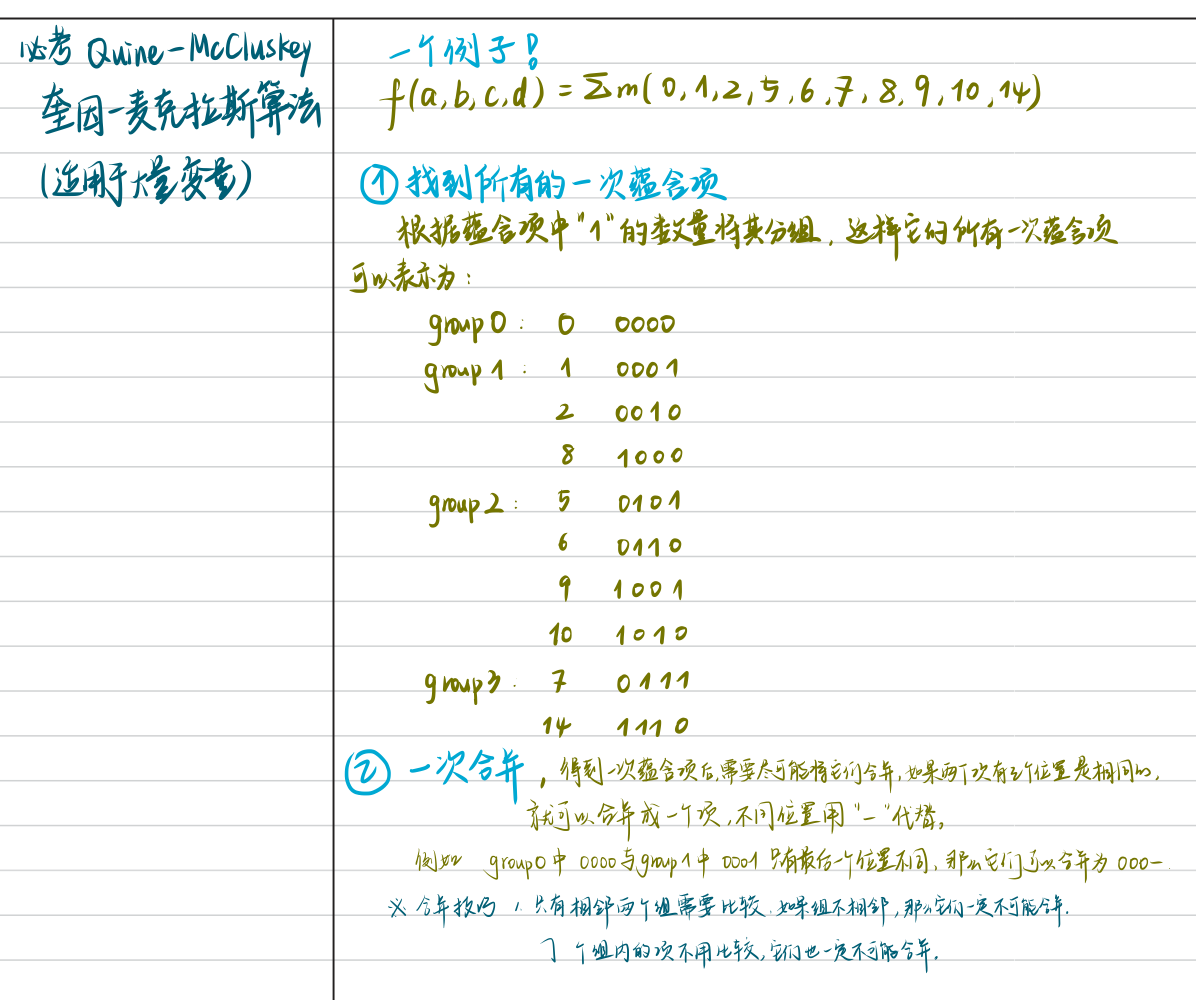 必考 Quine-McCluskey
奎因-麦克拉斯算法
(适用于大量变量)
一个例子!
f(a,b,c,d) = Σm(0,1,2,5,6,7,8,9,10,14)
① 找到所有的一次蕴含项
根据蕴含项中"1"的数量将其分组, 这样它的所有一次蕴含项
可以表示为:
group 0: 0 0000
group 1: 1 0001
2 0010
8 1000
group 2: 5 0101
6 0110
9 1001
10 1010
group 3: 7 0111
14 1110
② 一次合并, 得到一次蕴含项后, 需要尽可能将它们合并, 如果两个项有3个位置是相同的,
就可以合并成一个项, 不同位置用"-"代替。
例如 group0 中 0000 与 group1 中 0001 只有最后一个位置不同, 那么它们可以合并为 000-.
※ 合并技巧 1. 只有相邻两个组需要比较, 如果组不相邻, 那么它们一定不可能合并.
个组内的项不用比较, 它们也一定不可能合并.